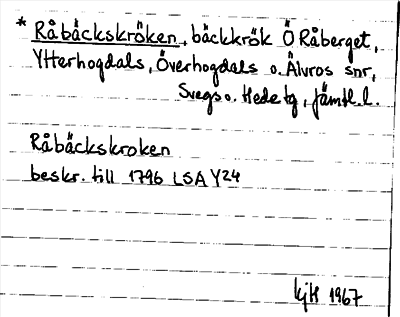 * Råbäckskröken, bäckkrök Ö Råberget,
Ytterhogdals, Överhogdals o. Älvros snr,
Svegs o. Hede tg, Jämtl. l.
Råbäckskroken
beskr. till 1796 LSA Y24
kjH 1967